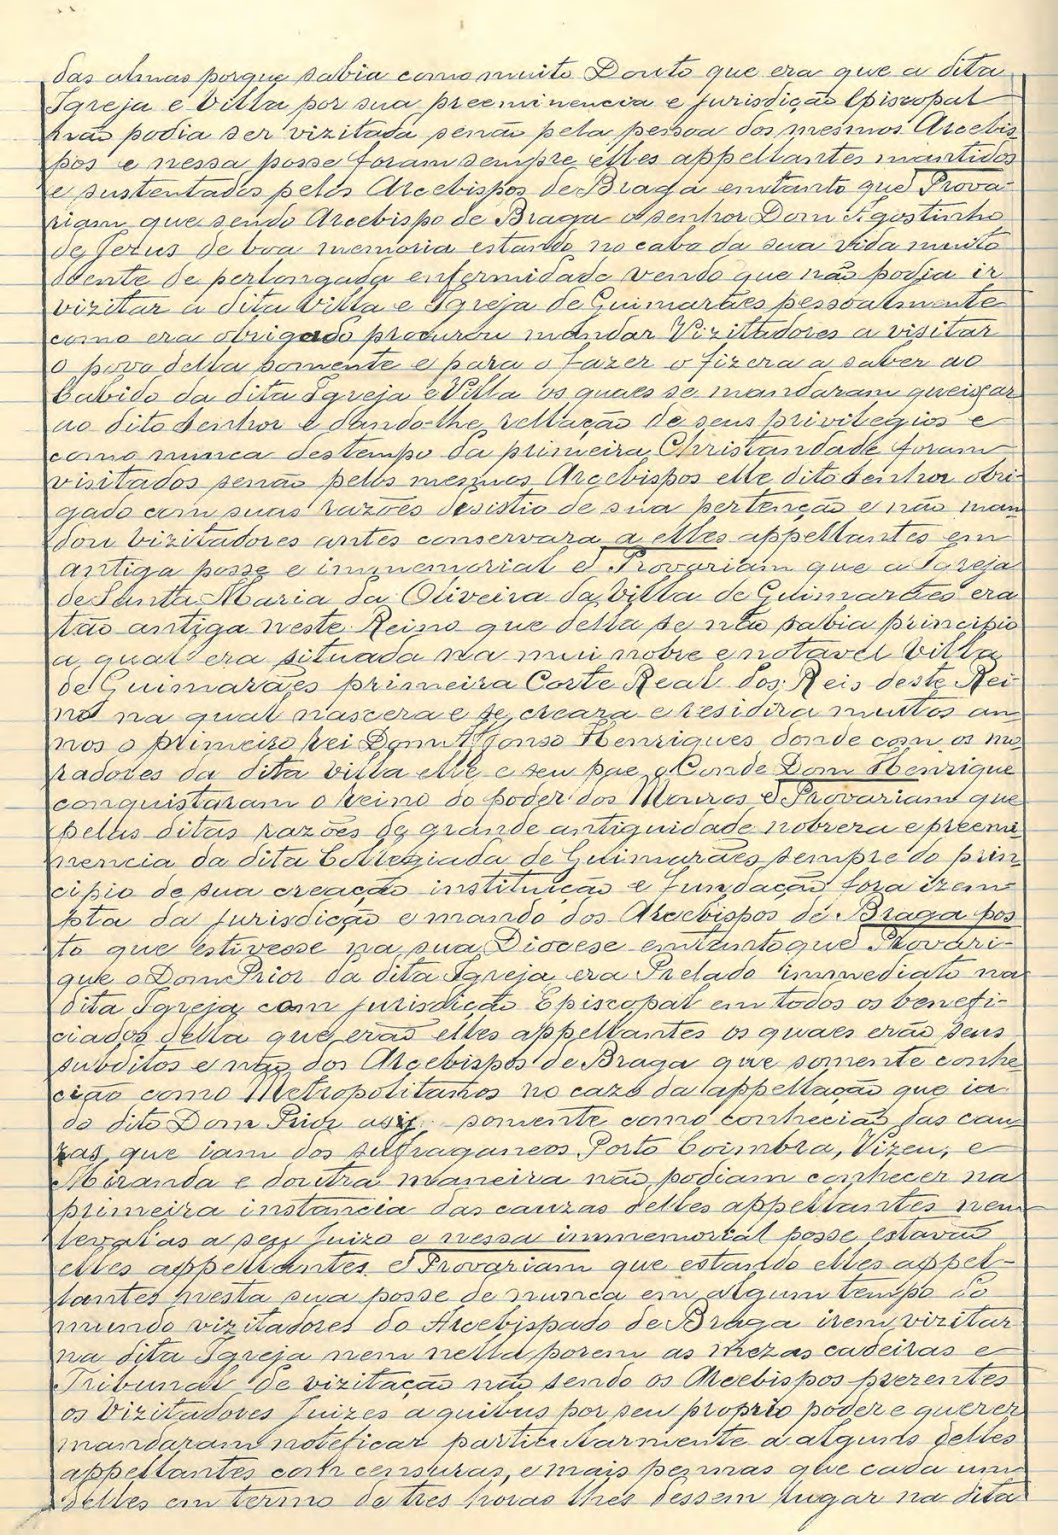 das almas porque sabia como muito Douto que era que a dita
Igreja e Villa por sua preeminencia e jurisdição Episcopal
não podia ser vizitada senão pela pessoa dos mesmos Arcebis-
pos e nessa posse foram sempre elles appellantes mantidos
e sustentados pelos Arcebispos de Braga emtanto que Prova-
riam que sendo Arcebispo de Braga o senhor Dom Agostinho
de Jezus de boa memoria estando no cabo da sua vida muito
doente de perlongada enfermidade vendo que não podia ir
vizitar a dita Villa e Igreja de Guimarães pessoalmente
como era obrigado procurou mandar Vizitadores a visitar
o povo della somente e para o fazer o fizera a saber ao
Cabido da dita Igreja e Villa os quaes se mandaram queixar
ao dito Senhor e dando-lhe rellação de seus privilegios e
como nunca des tempo da primeira Christandade foram
visitados senão pelos mesmos Arcebispos elle dito Senhor obri-
gado com suas razões desistio de sua pertenção e não man-
dou vizitadores antes conservara a elles appellantes em
antiga posse e immemorial e Provariam que a Igreja
de Santa Maria da Oliveira da Villa de Guimarães era
tão antiga neste Reino que della se não sabia principio
a qual era situada na mui nobre e notavel Villa
de Guimarães primeira Corte Real dos Reis deste Rei-
no na qual nascera e se creara e residira muitos an-
nos o primeiro rei Dom Affonso Henriques donde com os mo-
radores da dita villa elle e seu pae o Conde Dom Henrique
conquistaram o reino do poder dos Mouros e Provariam que
pelas ditas razões de grande antiguidade nobreza e preemi-
nencia da dita Collegiada de Guimarães sempre do prin-
cipio de sua creação instituição e fundação fora izem-
pta da jurisdicção e mando dos Arcebispos de Braga pos
to que estivesse na sua Diocese emtanto que Provari-
que o Dom Prior da dita Igreja era Prelado immediato na
dita Igreja com jurisdição Episcopal em todos os benefi-
ciados della que erão elles appellantes os quaes erão seus
subditos e não dos Arcebispos de Braga que somente conhe
cião como Metropolitanos no cazo da appellação que ia
do dito Dom Prior assi somente como conhecião das cau
zas que iam dos sufraganeos Porto Coimbra, Vizeu, e
Miranda e doutra maneira não podiam conhecer na
primeira instancia das cauzas delles appellantes nem
leval-as a seu Juizo e nessa immemorial posse estavão
elles appellantes e Provariam que estando elles appel-
lantes nesta sua posse de nunca em algum tempo do
mundo vizitadores do Arcebispado de Braga irem vizitar
na dita Igreja nem nella porem as mezas cadeiras e
Tribunal de vizitação não sendo os Arcebispos prezentes
os Vizitadores Juizes a quibus por seu proprio poder e querer
mandaram noteficar particularmente a alguns delles
appellantes com censuras, e mais pennas que cada um
delles em termo de tres horas lhes dessem lugar na dita